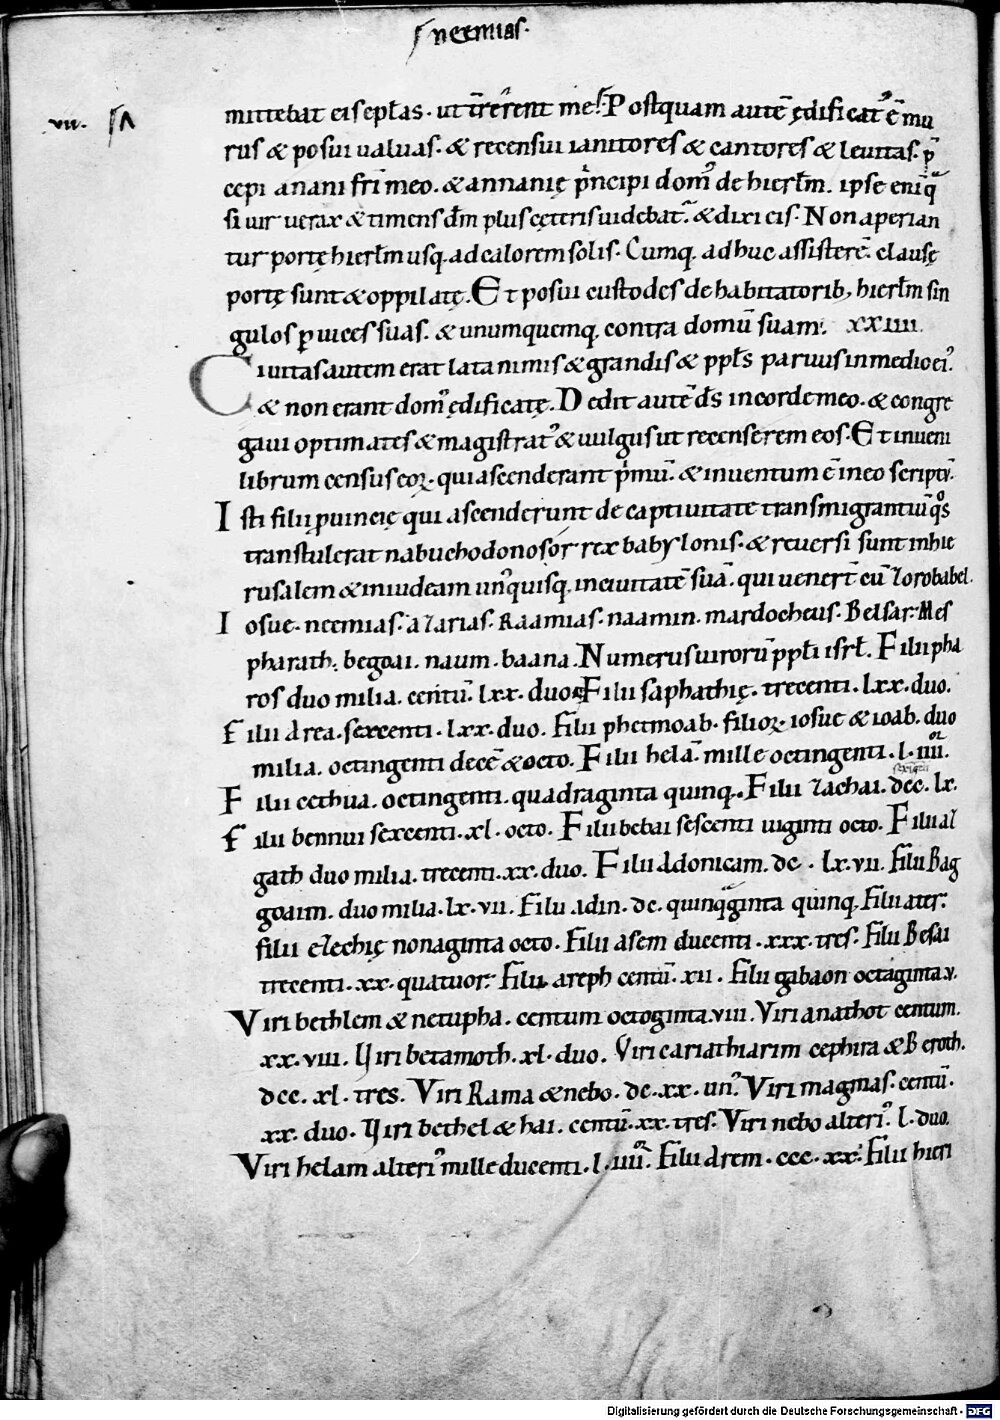 neemias.
vii.
mittebat eis ep̄las. ut t̄rērent me. Postquam autē ędificat᾿ ē mu
rus & posui ualuas. & recensui ianitores & cantores & leuitas. p̄
cepi anani fr̄i meo. & annanię p̍ncipi dom᾿ de hierl̄m. ipse eni q̄
si uir uerax & timens dm̄ plus cęteris uidebat̄. & dixi eis. Non aperian
tur portę hierl̄m usq. ad calorem solis. Cumq. adhuc assisterē. clausę
portę sunt & oppilatę. Et posui custodes de habitatorib; hierl̄m sin
gulos ꝑ uices suas. & unumquemq. contra domū suam. xxiiii.
Ciuitas autem erat lata nimis & grandis & ppl̄s paruus in medio ei᾿.
& non erant dom᾿ ędificatę. Dedit autē ds̄ in corde meo. & congre
gaui optimates & magistrat᾿ & uulgus ut recenserem eos. Et inueni
librum census eoꝝ. qui ascenderant p̍mū. & inuentum ē in eo scriptū.
Isti filii ꝓuincię qui ascenderunt de captiuitate transmigrantiū q᷒s
transtulerat nabuchodonosor rex babylonis. & reuersi sunt in hie
rusalem & in iudeam un᾿quisq. in ciuitatē suā. qui uenert̄ cū zorobabel.
Iosue. neemias. azarias. Raamias. naamin. mardocheus. Belsar. Mes
pharath. begoai. naum. baana. Numerus uirorū ppl̄i isrl̄. Filii pha
ros duo milia. centū. lxx. duo. Filii saphathię. trecenti. lxx. duo.
Filii area. sexcenti. lxx. duo. Filii phetmoab. filioꝝ iosue & ioab. duo
milia. octingenti decē & octo. Filii helā. mille octingenti. l. iiii.
Filii cethua. octingenti. quadraginta quinq. Filii zachai. dcc. lx.
Filii bennui sexcenti. xl. octo. Filii bebai sescenti uiginti octo. Filii az
gath duo milia. trecenti. xx. duo. Filii Adonicam. dc. lx. vii. Filii Bag
goaim. duo milia. lx. vii. Filii Adin. dc. quinq̄ginta quinq. Filii ater.
filii ezechię nonaginta octo. Filii asem ducenti. xxx. tres. Filii Besai
trecenti. xx. quatuor. Filii areph centū. xii. Filii gabaon octaginta. v.
Viri bethlem & netupha. centum octoginta. viii. Viri anathot centum.
xx. viii. Viri betamoth. xl. duo. Viri cariathiarim cephira & Beroth.
dcc. xl. tres. Viri Rama & nebo. dc. xx. un᾿. Viri magmas. centū.
xx. duo. Viri bethel & hai. centū. xx. tres. Viri nebo alteri᾿. l. duo.
Viri helam alteri᾿ mille ducenti. l. iiii. Filii Arem. ccc. xx. Filii hieri
Digitalisierung gefördert durch die Deutsche Forschungsgemeinschaft - DFG